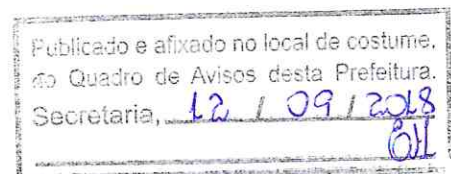 Publicado e afixado no local de costume,
do Quadro de Avisos desta Prefeitura.
Secretaria, 12 / 09 / 2018